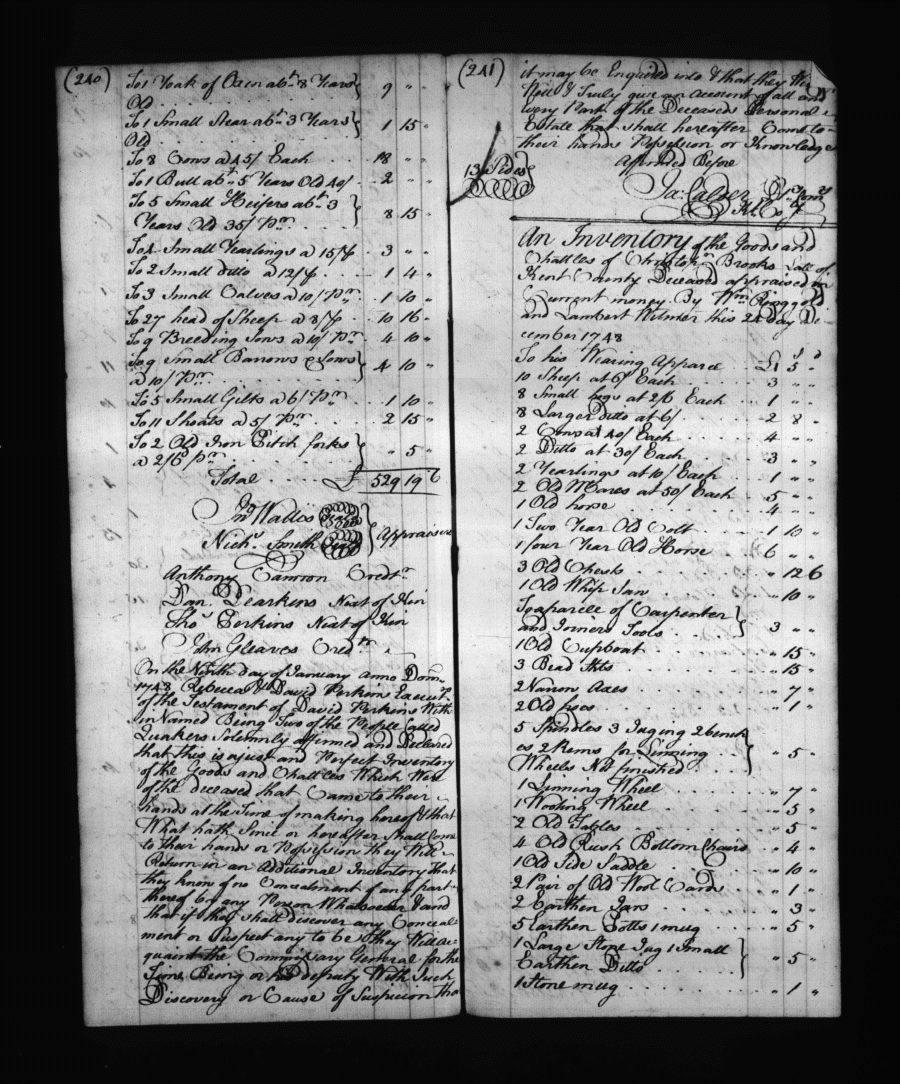 (240)
To 1 Yoak of Oxen abt. 8 Years
Old 9 " "
To 1 Small Stear abt. 3 Years
Old 1 15 "
To 8 Cows a 45/ Each 18 " "
To 1 Bull abt. 5 Years Old 40/ 2 " "
To 5 Small Heifers abt. 3
Years Old 35/ Pr. 8 15 "
To 4 Small Yearlings a 15/ 3 " "
To 2 Small ditto a 12/ 1 4 "
To 3 Small Calves a 10/ Pr. 1 10 "
To 27 head of Sheep a 8/ 10 16 "
To 9 Breeding Sows a 10/ Pr. 4 10 "
To 9 Small Barrows & Sows
a 10/ Pr. 4 10 "
To 5 Small Gilts a 6/ Pr. 1 10 "
To 11 Shoats a 5/ Pr. 2 15 "
To 2 Old Iron Pitch forks
a 2/6 pr. " 5 "
Total £ 529 19 6
Jno. Wallis Seal
Nichs. Smith Seal Appraisers
Anthony Camron Credtr.
Dan. Pearkins Next of Kin
Thos. Perkins Next of Kin
John Gleaves Credtr.
On the Ninth day of January anno Dom.
1748 Rebecca & David Perkins Execut.
of the Testament of David Perkins With
in Named Being Two of the People Called
Quakers Solemnly affirmed and Declared
that this is a just and Perfect Inventory
of the Goods and Chattles Which Were
of the deceased that Came to their
hands at the Time of making hereof & that
What hath Since or hereafter Shall Come
to their hands or Possession they Will
Return in an Additional Inventory that
they know of no Concealment of any part
thereof by any Person Whatsoever & and
that if they shall discover any Conceal
ment or Suspect any to be they Will Ac
quaint the Commissary General for the
Time Being or his deputy With Such
Discovery or Cause of Suspicion tha
(241)
it may be Enquired into & that they
Well & Truly give an account of all and
every Part of the Deceaseds Personal
Estate that shall hereafter Come to
their hands Possession or Knowledge
Affirmed Before
13 Sides
Ja: Calder Dy. Comry
Kt. Co.
An Inventory of the Goods and
Chattles of Christopr. Brooks Late of
Kent County Deceased appraised in
Current money By Wm. Ringgold
and Lambert Wilmer this 24 day De
cember 1748
s d
To his Wearing Apparel £1 5 "
10 Sheep at 6/ Each 3 " "
8 Small hogs at 2/6 Each 1 " "
8 Larger Ditto at 6/ 2 8 "
2 Cows at 40/ Each 4 " "
2 Ditto at 30/ Each 3 " "
2 Yearlings at 10/ Each 1 " "
2 Old Mares at 50/ Each 5 " "
1 Old horse 4 " "
1 Two Year Old Colt 1 10 "
1 four Year Old Horse 6 " "
3 Old Chests " 12 6
1 Old Whip Saw " 10 "
To a parcele of Carpenter
and Joiners Tools 3 " "
1 Old Cupboat " 15 "
3 Bead " 15 "
2 Narrow Axes " 7 "
2 Old hoes " 1 "
5 Spindles 3 2 bench
es 2 Rems for Linning
Wheels Not finished " 5 "
1 Linning Wheel " 7 "
1 Wooling Wheel " 5 "
2 Old Tables " 5 "
4 Old Rush Bottom Chairs " 4 "
1 Old Side Saddle " 10 "
2 Pair of Old Wool Cards " 1 "
2 Earthen Jars " 3 "
5 Earthen Potts 1 mug " 5 "
1 Large Stone Jug 1 Small
Earthen Ditto " 5 "
1 Stone mug " 1 "